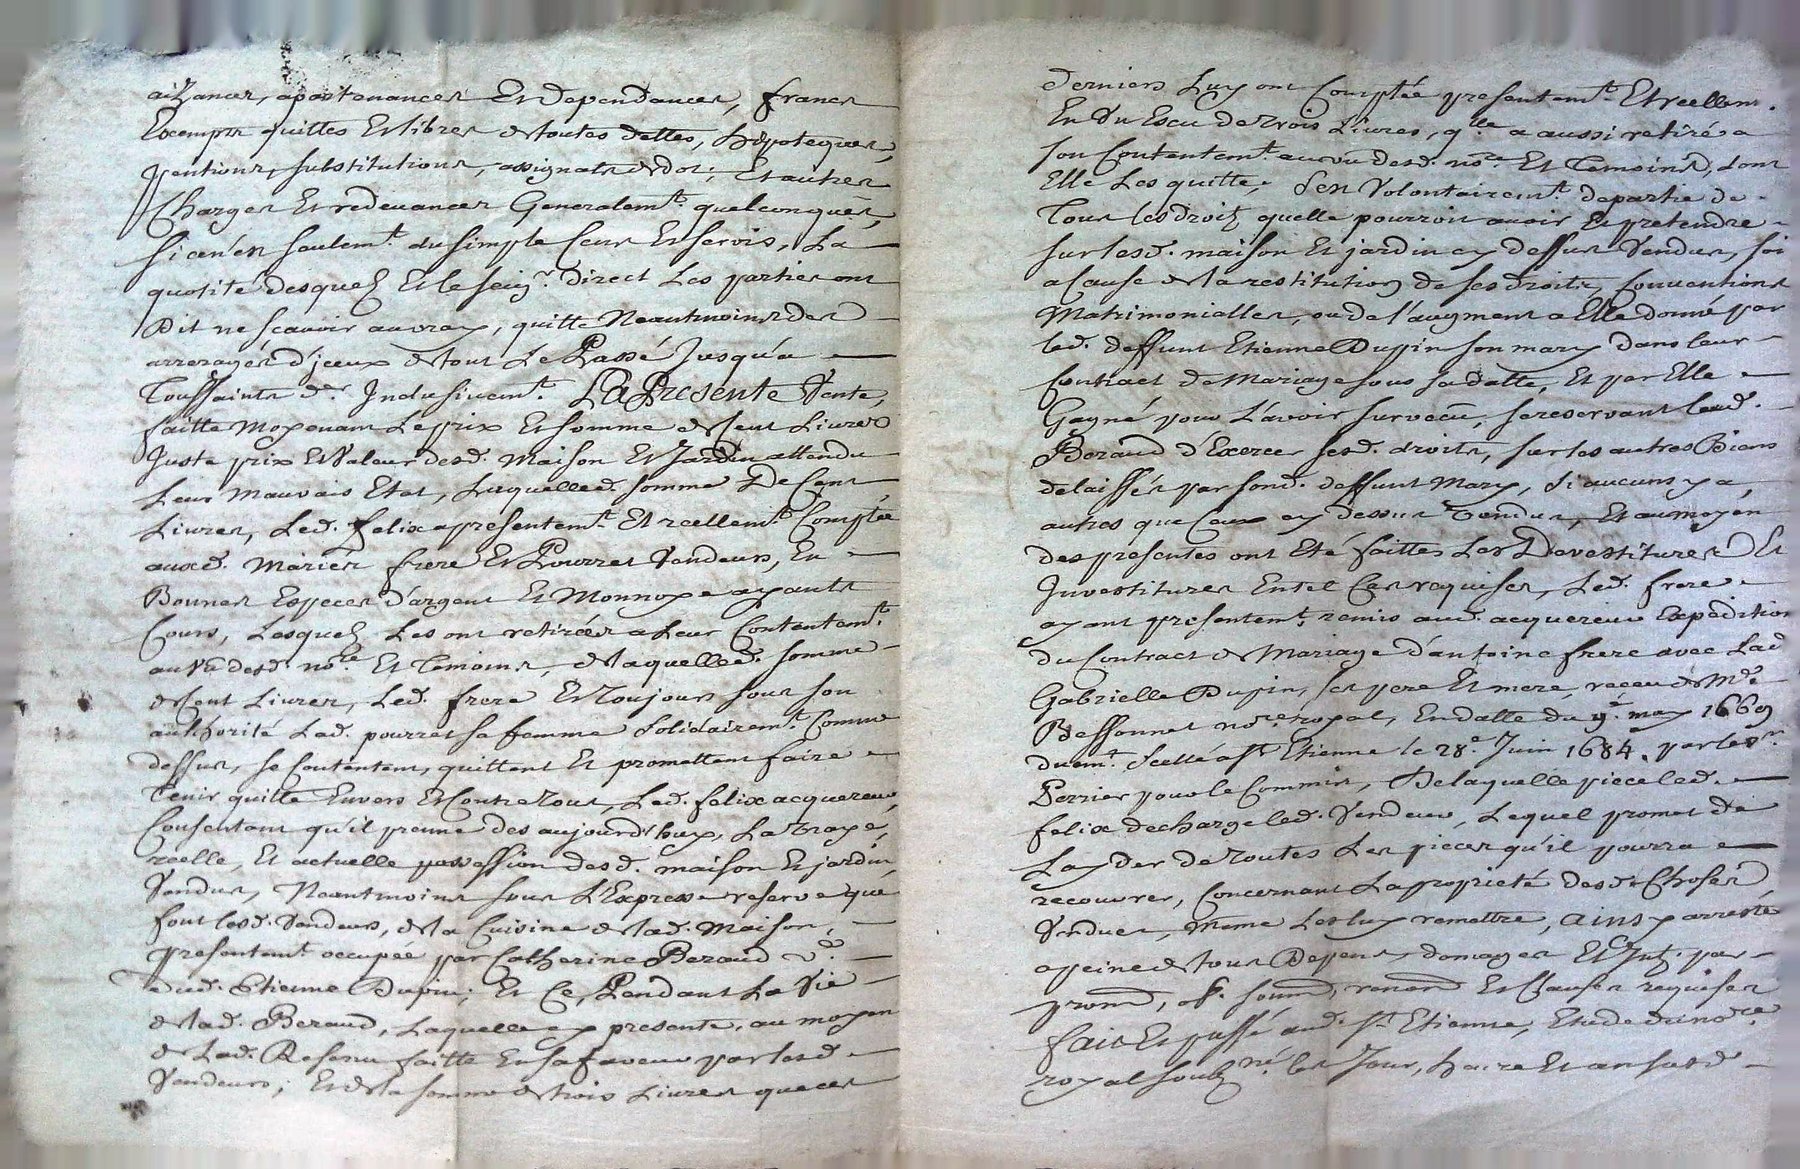 aizances, apartenances Et dependances, francs
Exempts quittes Et libres de toutes dettes, hipoteques,
pentions, substitutions, assignats de dot; Et autres
Charges Et redevances Generalemt. quelconques,
si cen'est seulemt. du simple Cens Et servis, La
quotité desquels Et le seigr. direct Les parties ont
Dit ne scavoir au vray, quitte Neantmoins des
arrerages d'jceux de tout Le Passé Jusqu'a
Toussaints dr. Inclusivemt. La Presente Vente,
faitte Moyenant Le prix Et somme de Cent Livres
Juste prix Et Valeur desd. Maison Et Jardin attendu
Leur Mauvais Etat, Laquelle d. somme De Cent
Livres, Led. felix a presentemt. Et reellemt. Comptée
auxd. Mariés frere Et Pourret Vendeurs, En
Bonnes Especes d'argent Et Monnoye ayants
Cours, Lesquels Les ont retirées a Leur Contentemt.
au vû desd. nore. Et Temoins, de laquelle d. somme
de Cent Livres, Led. frere Et Toujours sous son
authorité Lad. pourret sa femme solidairemt. Comme
dessus, se Contentent, quittent Et promettent faire
Tenir quitte Envers Et Contre Tous, Led. felix acquereur,
Consentant qu'il prenne des aujourd'huy, La vraye,
reelle, Et actuelle possession desd. maison Et jardin
Vendus, Neantmoins sous L'Expresse reserve que
font lesd. Vendeurs, de la Cuisine de lad. Maison,
presentemt. occupée par Catherine Beraud Ve.
dud. Etienne Dupin; Et Ce, Pendant La Vie
de lad. Beraud, Laquelle cy presente, au moyen
de Lad. Reserve faitte En sa faveur par lesd.
Vendeurs; Et de la somme de trois Livres que ces
derniers Luy ont Comptée presentemt. Et reellemt.
En Un Escu de Trois Livres, qlle a aussi retiré a
son Contentemt. au vû desd. nore. Et Temoins, dont
Elle Les quitte, s'est Volontairemt. departie de
Tous les droits quelle pourroit avoir Et pretendre
sur lesd. maison Et jardin cy dessus Vendus, soi
a Cause de la restitution de ses droits, Conventions
Matrimonialles, ou de l'augment a Elle donné par
led. deffunt Etienne Dupin son mary dans leur
Contract de Mariage sous sa datte, Et par Elle
Gagné pour L'avoir survecu, se reservant lad.
Beraud d'Exercer sesd. droits, sur les autres Biens
delaissés par sond. deffunt Mary, si aucuns y a,
autres que Ceux cy dessus Vendus, Et au moyen
des presentes ont Eté faittes Les Devestitures Et
Investitures En tel Cas requises, Led. frere
ayant presentemt. remis aud. acquereur Expedition
du Contract de Mariage d'antoine frere avec Lad
Gabrielle Dupin, ses pere Et mere, receu de Me.
Bessonnet nore. royal, En datte du 9e. may 1669
duemt. scellé a St. Etienne le 28e. Juin 1684. par le sr.
Perrier pour le Commis, De laquelle piece led.
felix decharge led. Vendeur, Lequel promet de
L'ayder de Toutes Les pieces qu'il pourra
recouvrer, Concernant La proprieté desd. Choses
Vendues, même Les luy remettre, ainsy arresté
a peine de tous Depens, domages Et Int. par
prom, ob. soum, renon Et Clauses requises
fait Et passé aud. St. Etienne, Etude du nore.
royal soubsné. les Jour, heure Et an susd.